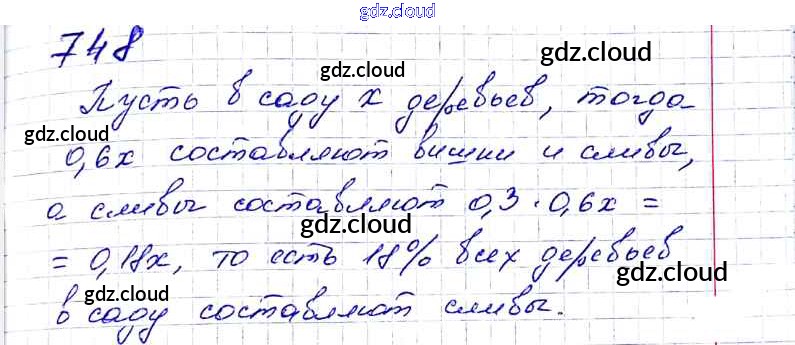 gdz.cloud
748
gdz.cloud
gdz.cloud
gdz.cloud
Пусть в саду x деревьев, тогда
gdz.cloud
gdz.cloud
0,6x составляют вишни и сливы,
gdz.cloud
а сливы составляют 0,3 · 0,6x =
gdz.cloud
= 0,18x, то есть 18% всех деревьев
gdz.cloud
gdz.cloud
в саду составляют сливы.